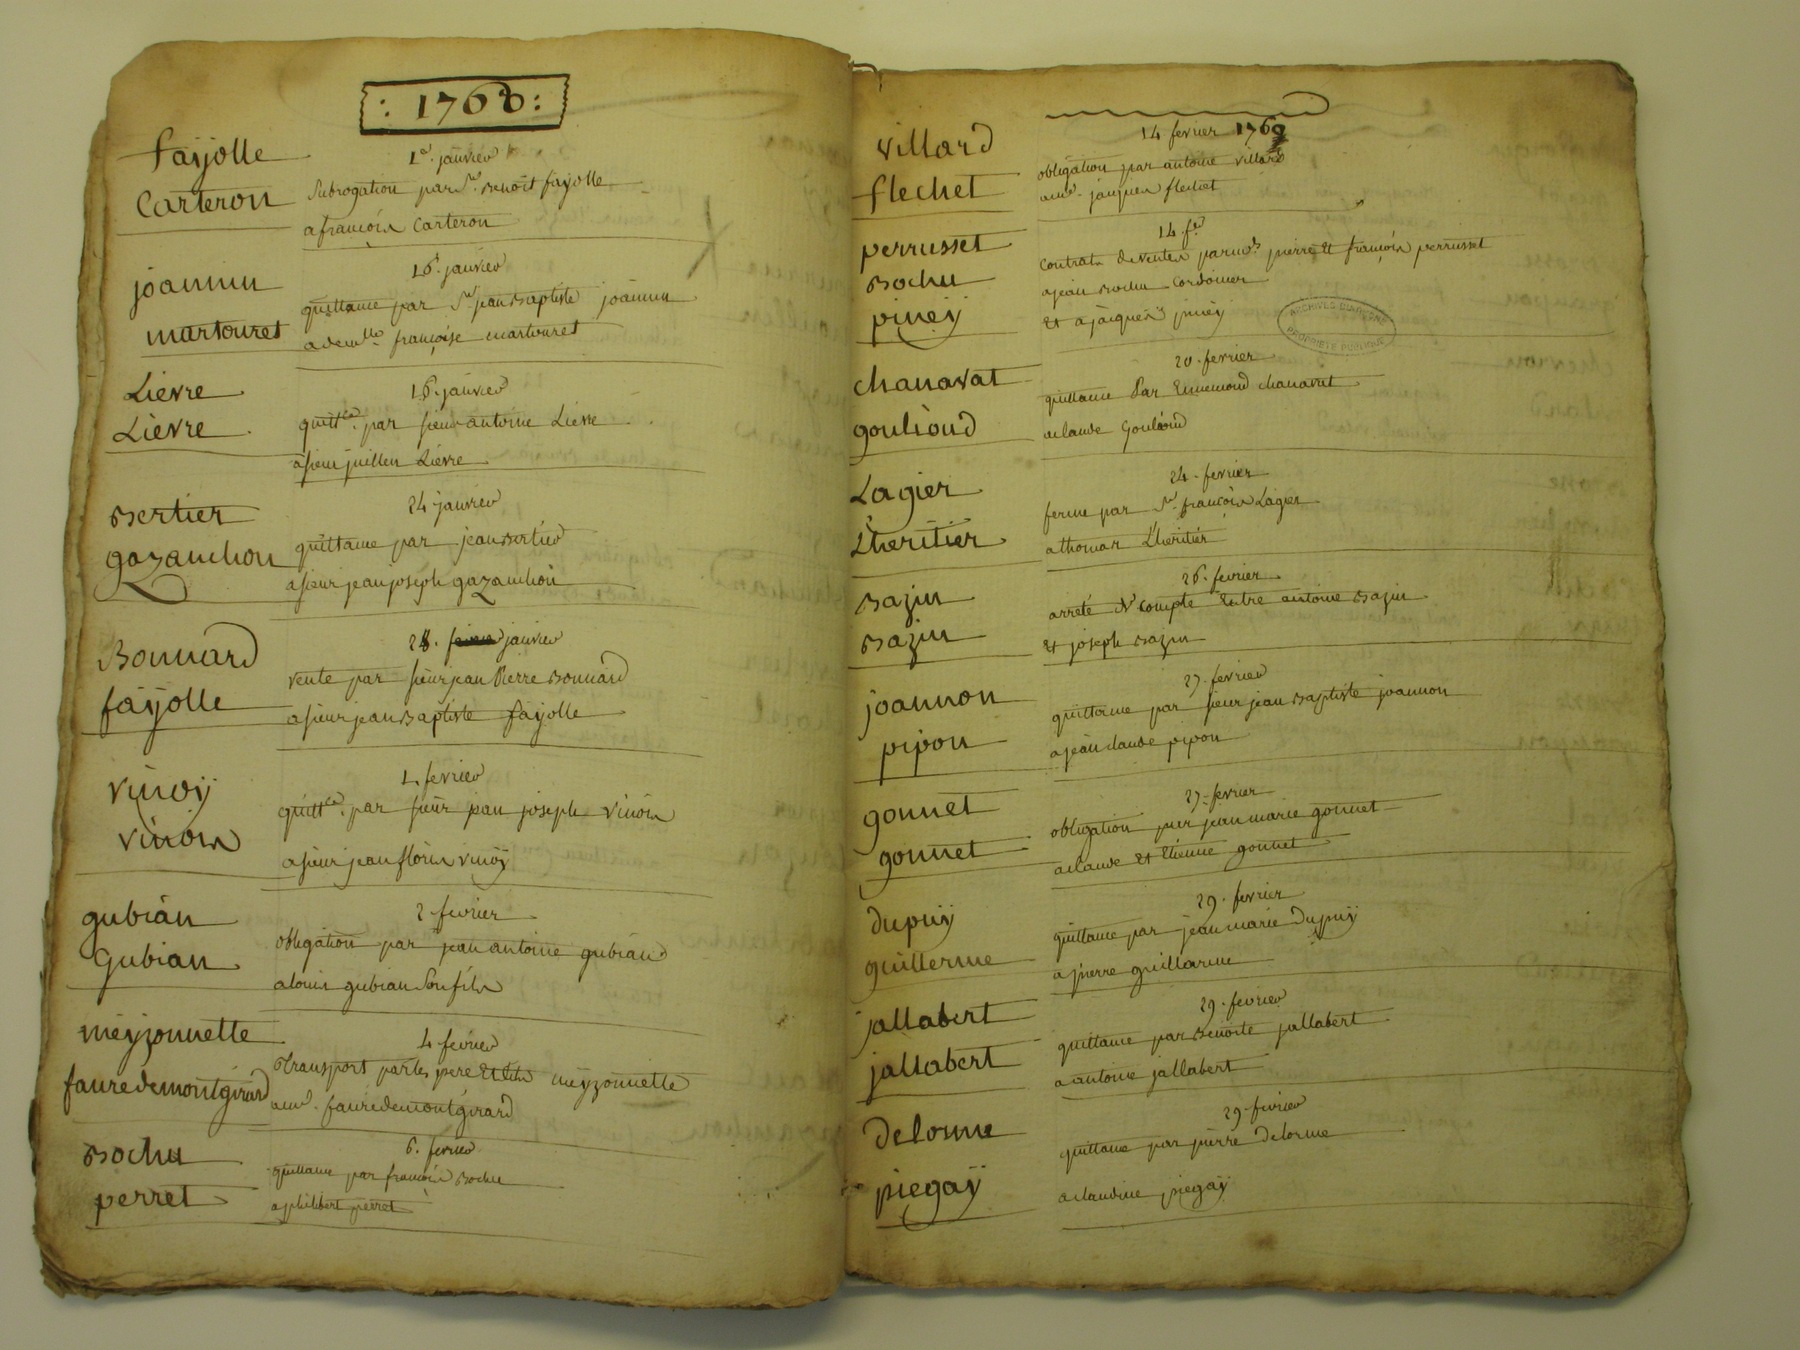 : 1768 :
fayolle
Carteron
1er. janvier
Subrogation par Sr. Benoit fayolle
a francois Carteron
joannin
martouret
16. janvier
quittance par Sr. jean Baptiste joannin
a demlle. françoise martouret
Lievre
Lievre
16. janvier
quittce. par sieur antoine Lievre
a sieur juillen Lievre
Bertier
gazanchon
24 janvier
quittance par jean Bertier
a sieur jean joseph gazanchon
Bonnard
fayolle
28. janvier
vente par sieur jean Pierre Bonnard
a sieur jean Baptiste fayolle
vinoÿ
vinois
1. fevrier
quittce. par sieur jean joseph vinois
a sieur jean floris vinoÿ
gubian
Gubian
2 fevrier
obligation par jean antoine gubian
a louis gubian son fils
meyzonnette
faure de montgirard
4 fevrier
Transport par les pere et fils meyzonnette
a mr. faure de montgirard
Bochu
perret
6. fevrier
quittance par francois Bochu
a philibert perret
villard
flechet
14 fevrier 1768
obligation par antoine villard
a mr. jacques flechet
perrusset
Bochu
pineÿ
14. fer
Contrats de ventes par mrs pierre et françois perrusset
a jean Bochu Cordonier
et a jacques pineÿ
ARCHIVES DU RHÔNE
PROPRIÉTÉ PUBLIQUE
chanavat
goulioud
20. fevrier
quittance Par Ennemond chanavat
a claude Goulioud
Lagier
Lheritier
24. fevrier
ferme par Sr. francois Lagier
a thomas Lheritier
Bazin
Bazin
26. fevrier
arreté de compte Entre antoine Bazin
et joseph Bazin
joannon
pipon
27. fevrier
quittance par sieur jean Baptiste joannon
a jean claude pipon
gonnet
gonnet
27. fevrier
obligation par jean marie gonnet
a claude et Etienne gonnet
dupuÿ
guillerme
29. fevrier
quittance par jean marie Dupuÿ
a pierre guillarme
jallabert
jallabert
29. fevrier
quittance par Benoite jallabert
a antoine jallabert
delorme
piegaÿ
29. fevrier
quittance par pierre Delorme
a claudine piegaÿ